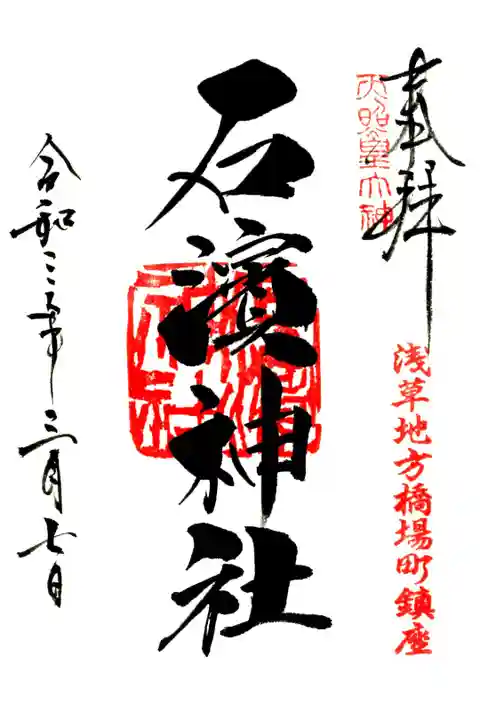 奉拝
天照皇大神
浅草地方橋場町鎮座
石濱神社
令和三年三月七日